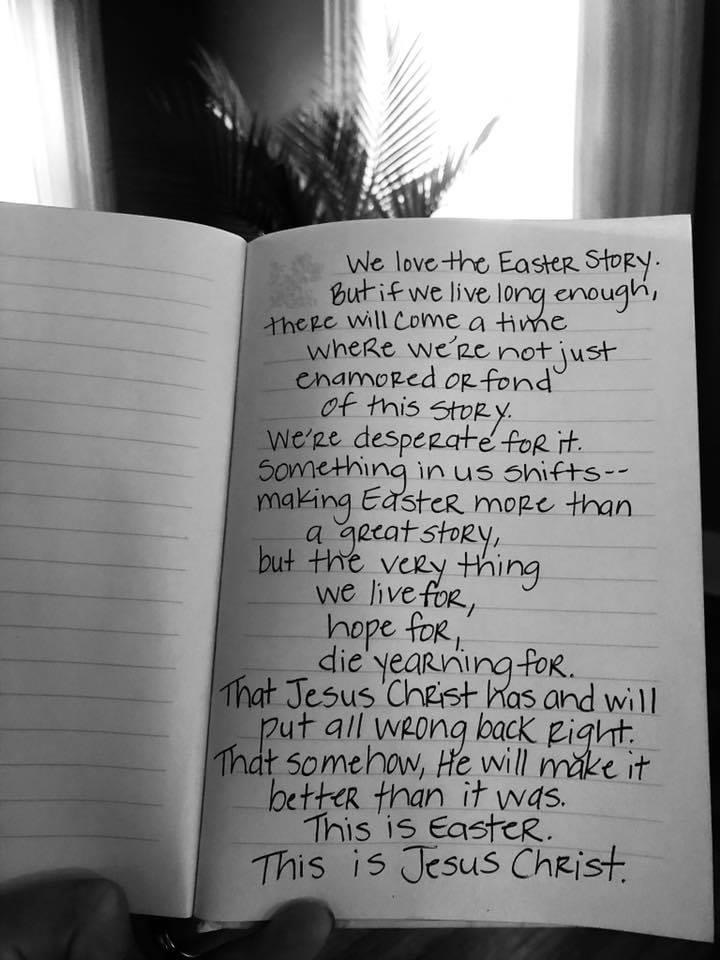 We love the Easter Story.
But if we live long enough,
there will come a time
where we're not just
enamored or fond
of this story.
We're desperate for it.
Something in us shifts--
making Easter more than
a great story,
but the very thing
we live for,
hope for,
die yearning for.
That Jesus Christ has and will
put all wrong back right.
That somehow, He will make it
better than it was.
This is Easter.
This is Jesus Christ.